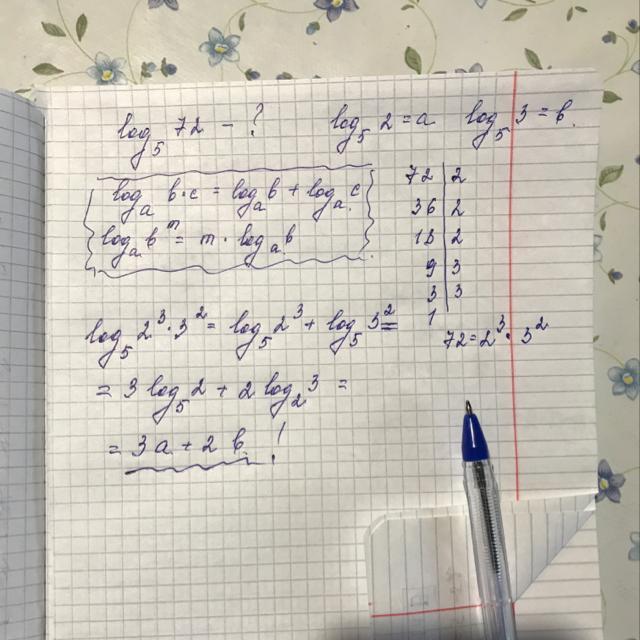 log₅ 72 - ? log₅ 2 = a log₅ 3 = b.
logₐ b·c = logₐ b + logₐ c
logₐ bᵐ = m · logₐ b
72 | 2
36 | 2
18 | 2
9 | 3
3 | 3
1
72 = 2³ · 3²
log₅ 2³ · 3² = log₅ 2³ + log₅ 3² =
= 3 log₅ 2 + 2 log₂ 3 =
= 3a + 2b !